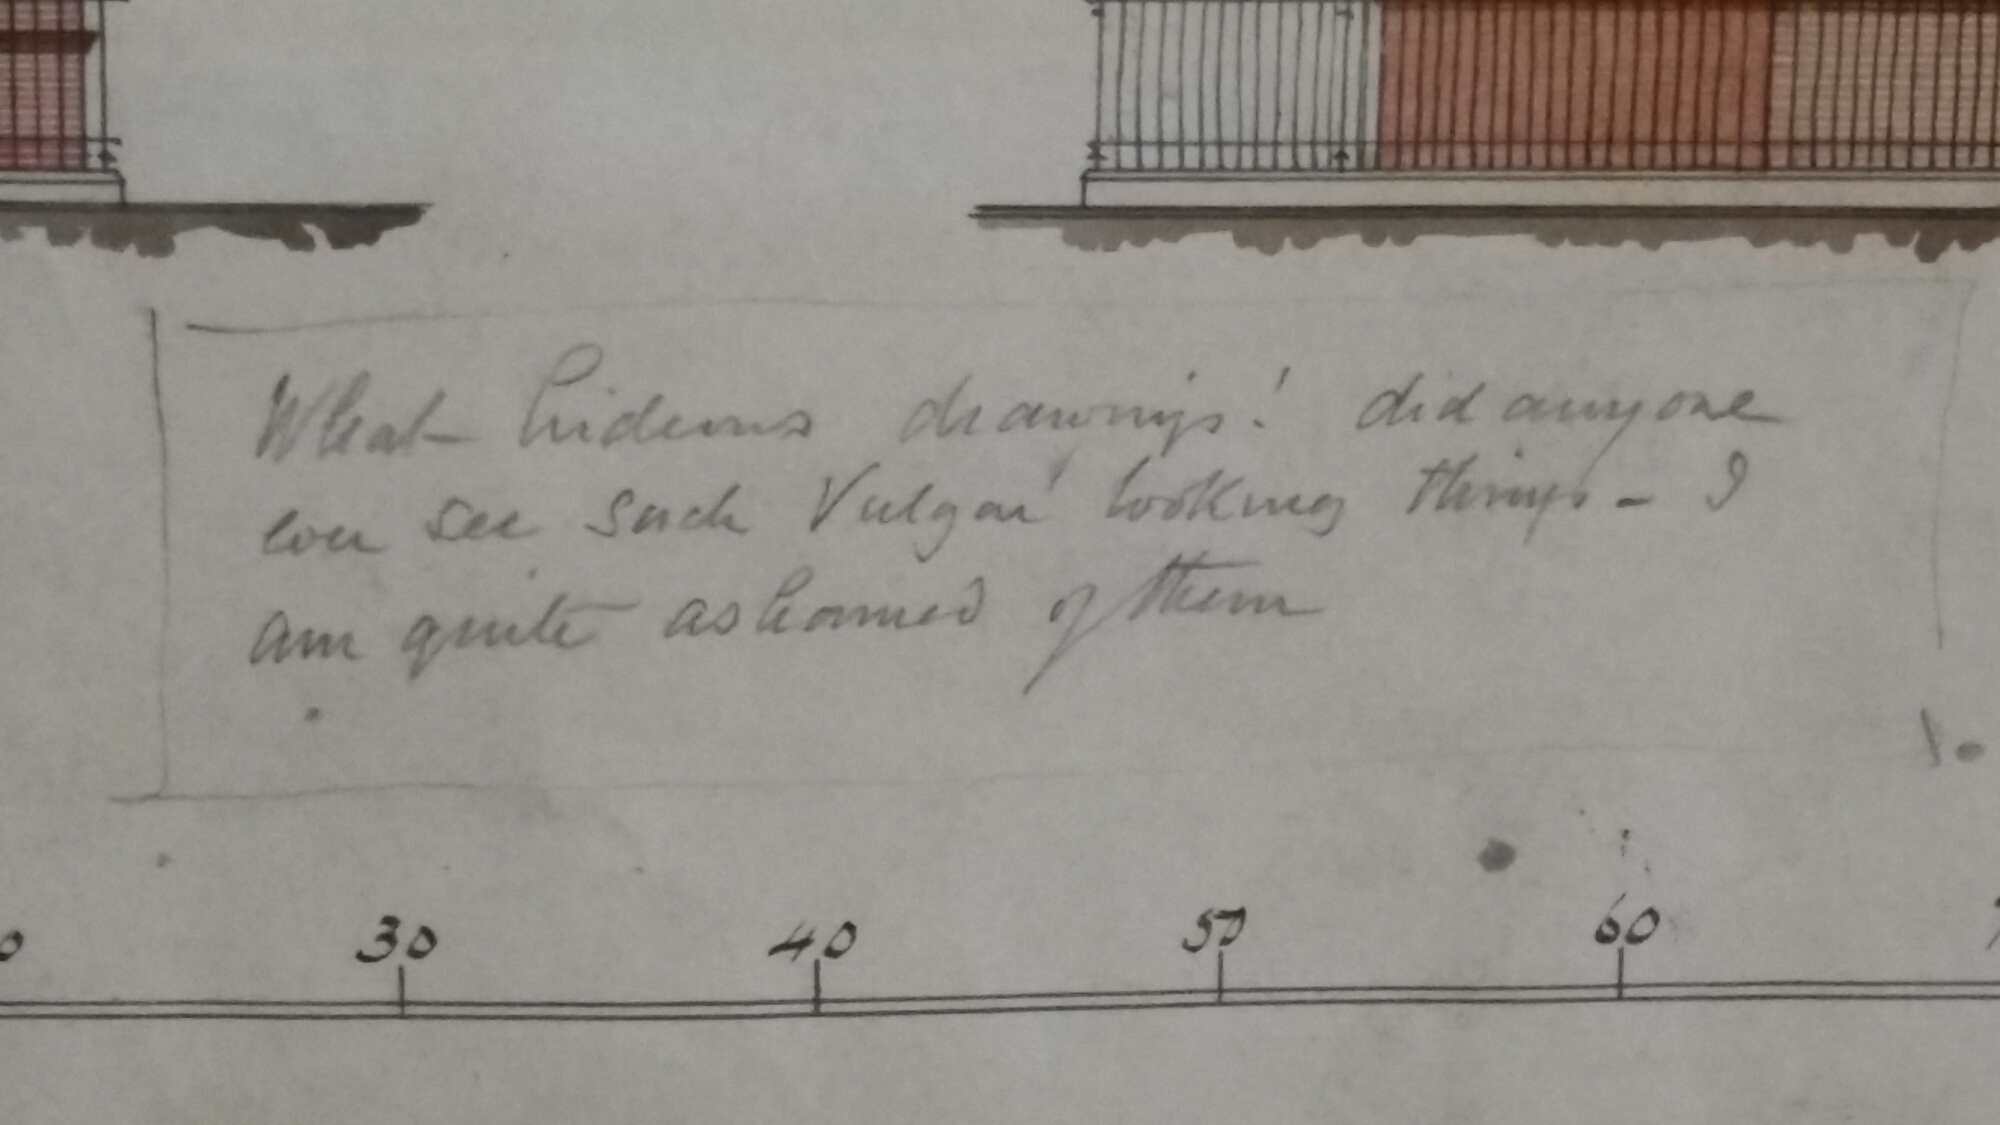 What hideous drawings! did anyone
ever see such Vulgar looking things - I
am quite ashamed of them
30 40 50 60